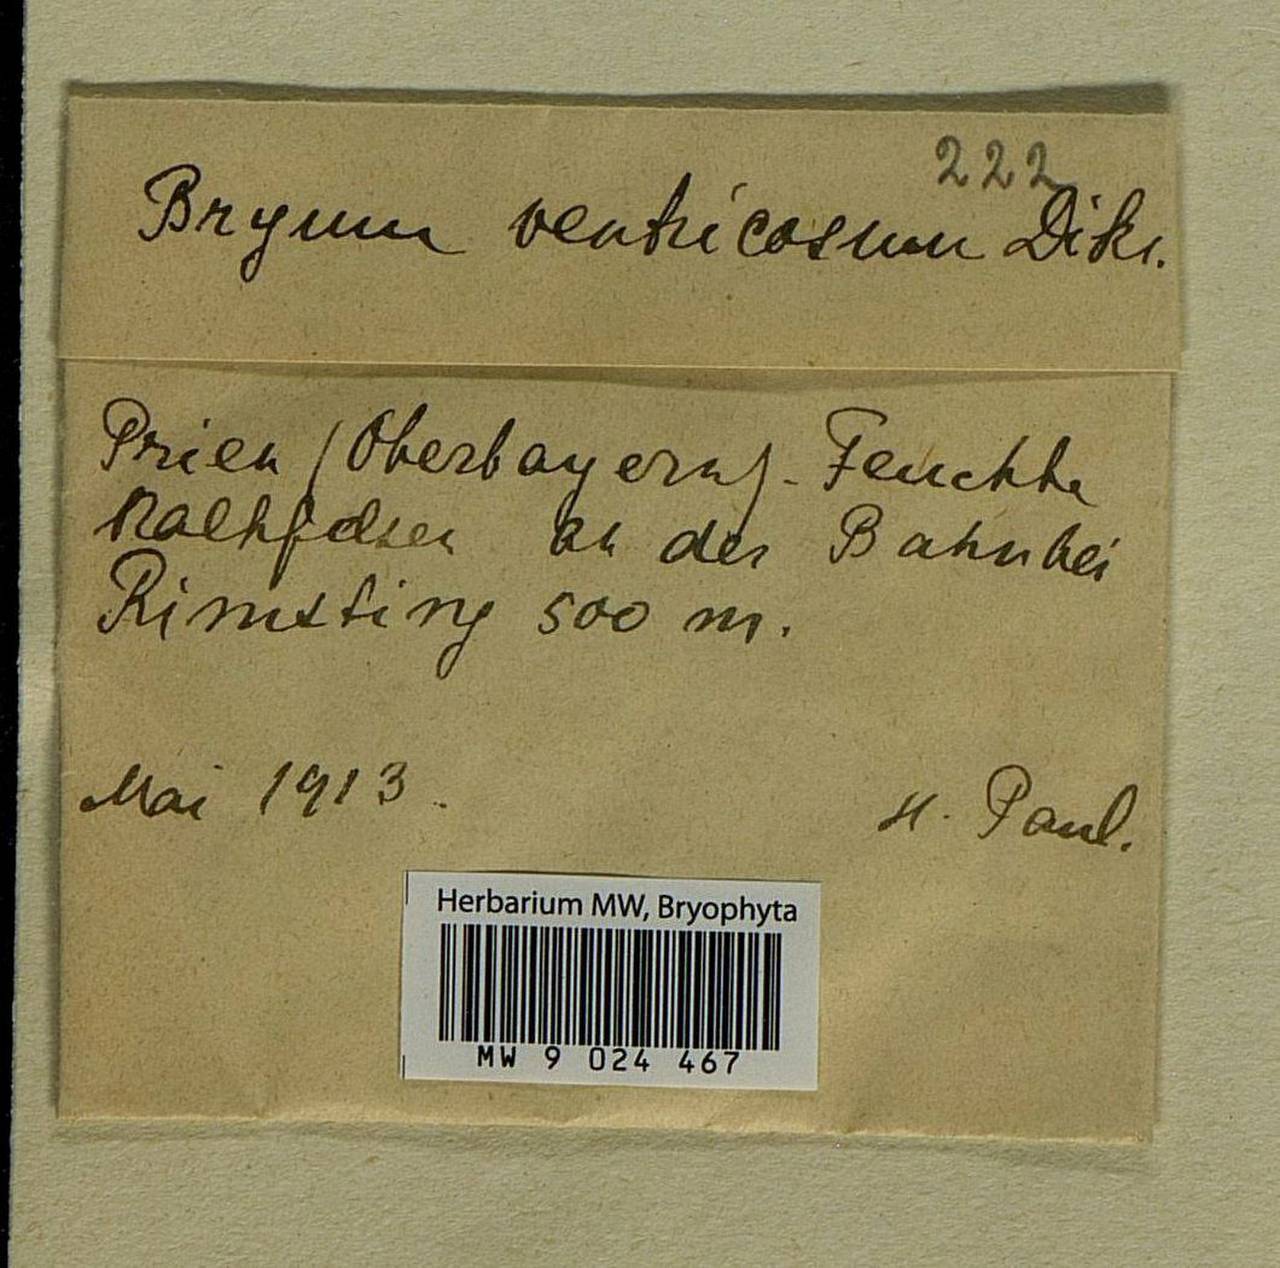 222
Bryum ventricosum Diks.
Prien (Oberbayern). Feuchte
Kalkfelsen an der Bahn bei
Rimsting 500 m.
Mai 1913.
H. Paul.
Herbarium MW, Bryophyta
MW 9 024 467